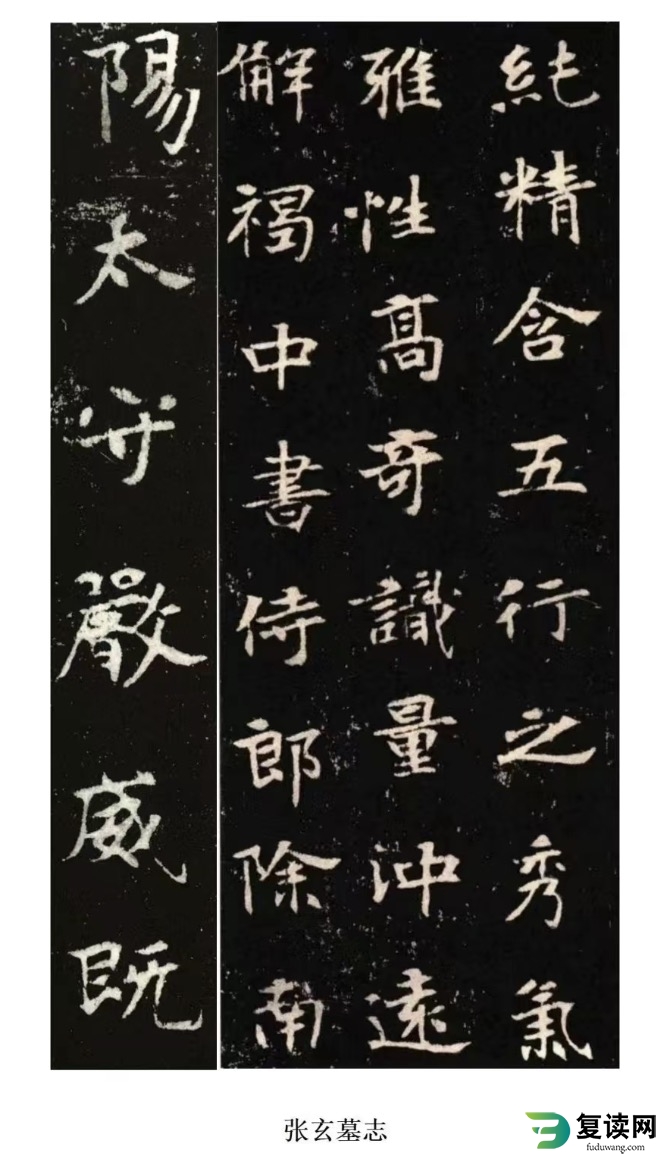 純精含五行之秀氣
雅性高奇識量沖遠
解褐中書侍郎除南
陽太守嚴威既
张玄墓志
复读网
fuduwang.com